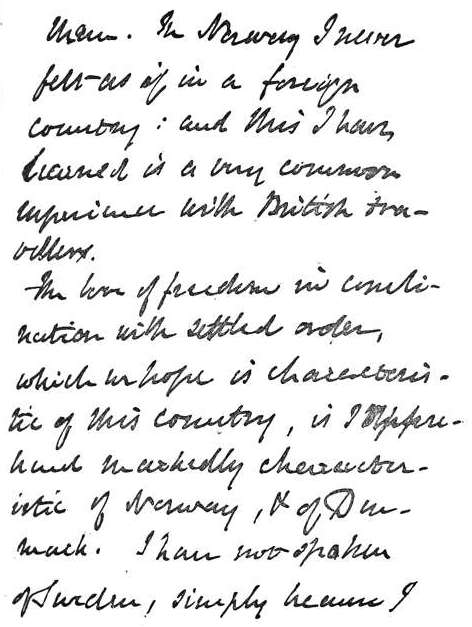 them. In Norway I never
felt as if in a foreign
country: and this I have
learned is a very common
experience with British tra-
vellers.
The love of freedom in combi-
nation with settled order,
which we hope is characteris-
tic of this country, is I appre-
hend markedly character-
istic of Norway, & of Den-
mark. I have not spoken
of Sweden, simply because I